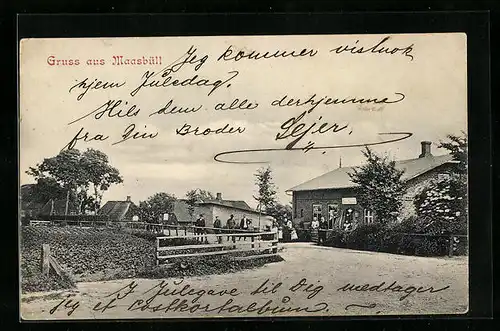 Gruss aus Maasbüll
Jeg kommer vistnok
hjem Juledag?
Hils dem alle derhjemme
fra Din Broder
Lejer.
I Julegave til Dig medtager
Jeg et costkortalbum.